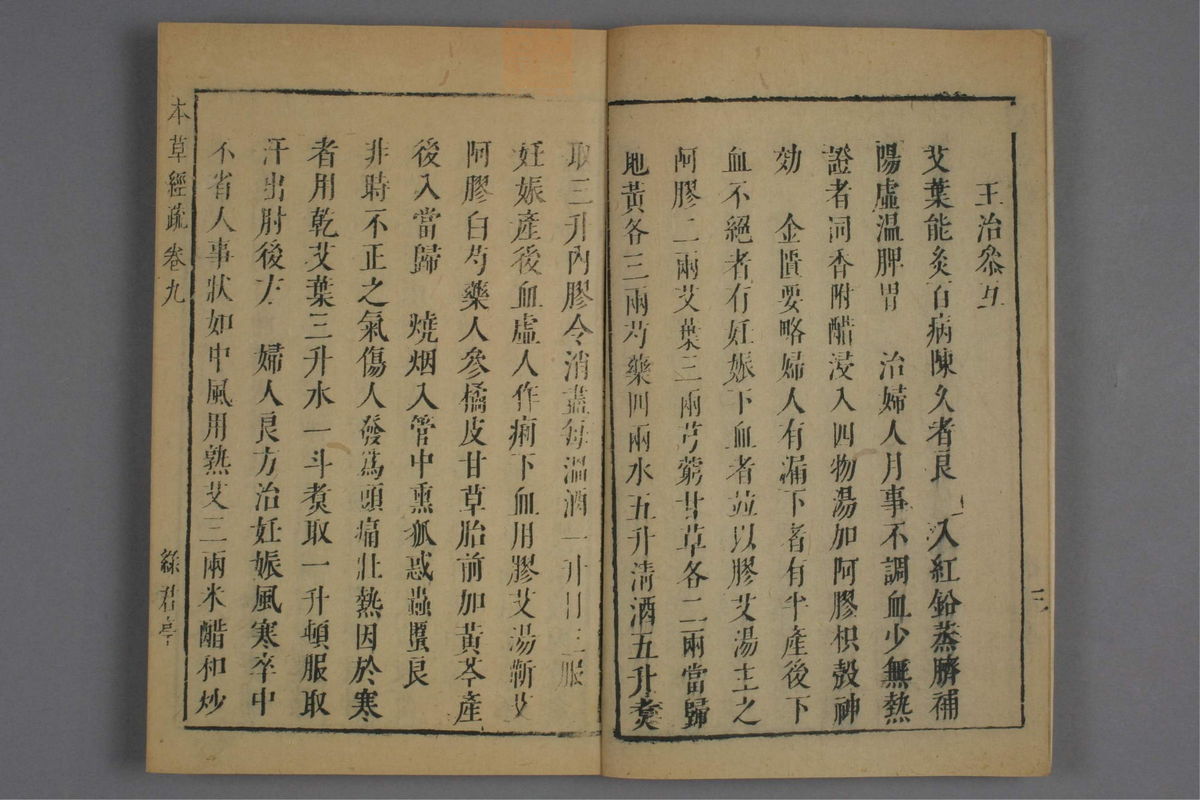 三
主治叅互
艾葉能灸百病陳久者良　入紅鉛蒸臍補
陽虛溫脾胃　治婦人月事不調血少無熱
證者同香附醋浸入四物湯加阿膠枳殼神
効　金匱要略婦人有漏下者有半產後下
血不絕者有妊娠下血者並以膠艾湯主之
阿膠二兩艾葉三兩芎藭甘草各二兩當歸
地黃各三兩芍藥四兩水五升清酒五升煑
取三升內膠令消盡每溫酒一升日三服
妊娠產後血虛人作痢下血用膠艾湯蘄艾
阿膠白芍藥人參橘皮甘草胎前加黃芩產
後入當歸　燒烟入管中熏狐惑蟲䘌良
非時不正之氣傷人發為頭痛壯熱因於寒
者用乾艾葉三升水一斗煑取一升頓服取
汗出肘後方　婦人良方治妊娠風寒卒中
不省人事狀如中風用熟艾三兩米醋和炒
本草經疏 卷九
綠君亭